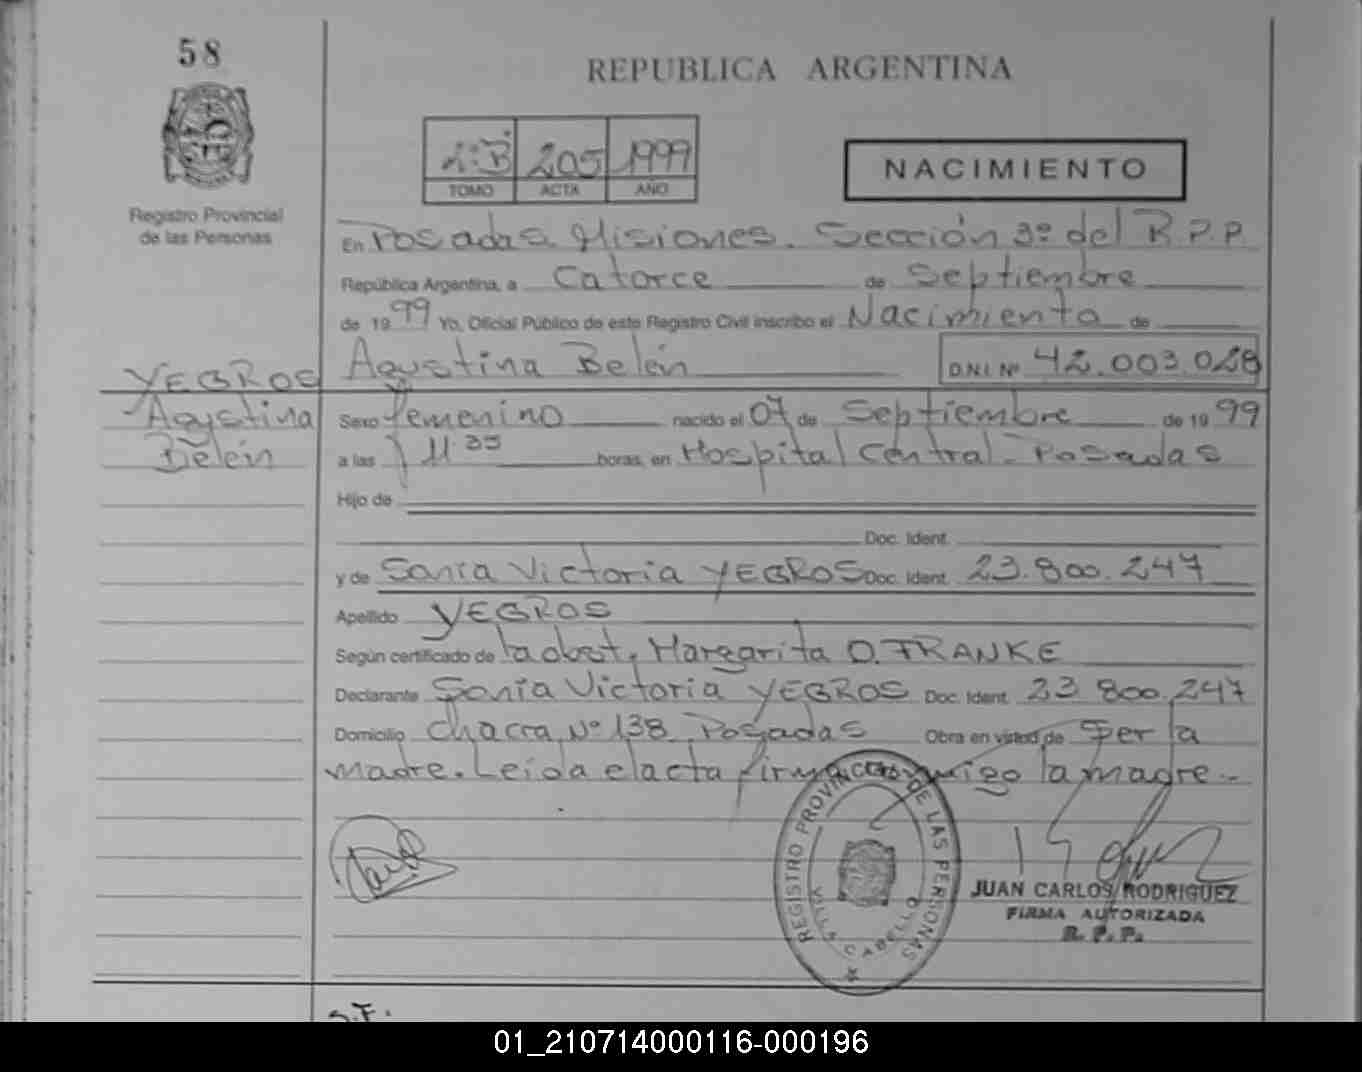 58
REPUBLICA ARGENTINA
2º B 205 1999
TOMO ACTA AÑO
NACIMIENTO
Registro Provincial
de las Personas
En Posadas Misiones. Sección 3º del R.P.P.
República Argentina, a Catorce de Septiembre
de 19 99 Yo, Oficial Público de este Registro Civil inscribo el Nacimiento de
Agustina Belén D.N.I. Nº 42.003.028
YEGROS
Agustina
Belén
Sexo femenino nacido el 07 de Septiembre de 19 99
a las 11 35 horas, en Hospital Central - Posadas
Hijo de
Doc. Ident.
y de Sonia Victoria YEGROS Doc. Ident. 23.800.247
Apellido YEGROS
Según certificado de la obst. Margarita O. FRANKE
Declarante Sonia Victoria YEGROS Doc. Ident. 23.800.247
Domicilio Chacra Nº 138 Posadas Obra en virtud de Ser la
madre. Leída el acta firma conmigo la madre.-
REGISTRO PROVINCIAL DE LAS PERSONAS
VILLA CABELLO
JUAN CARLOS RODRIGUEZ
FIRMA AUTORIZADA
R. P. P.
S.F.
01_210714000116-000196